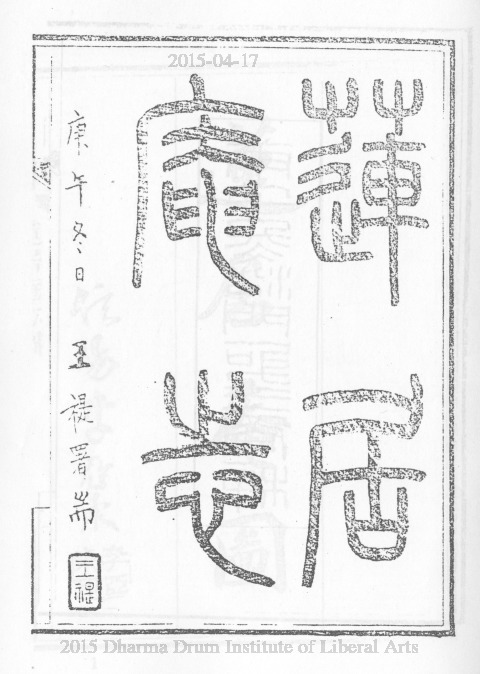 2015-04-17
蓮居
庵志
庚午冬日 王禔署耑
王禔
2015 Dharma Drum Institute of Liberal Arts